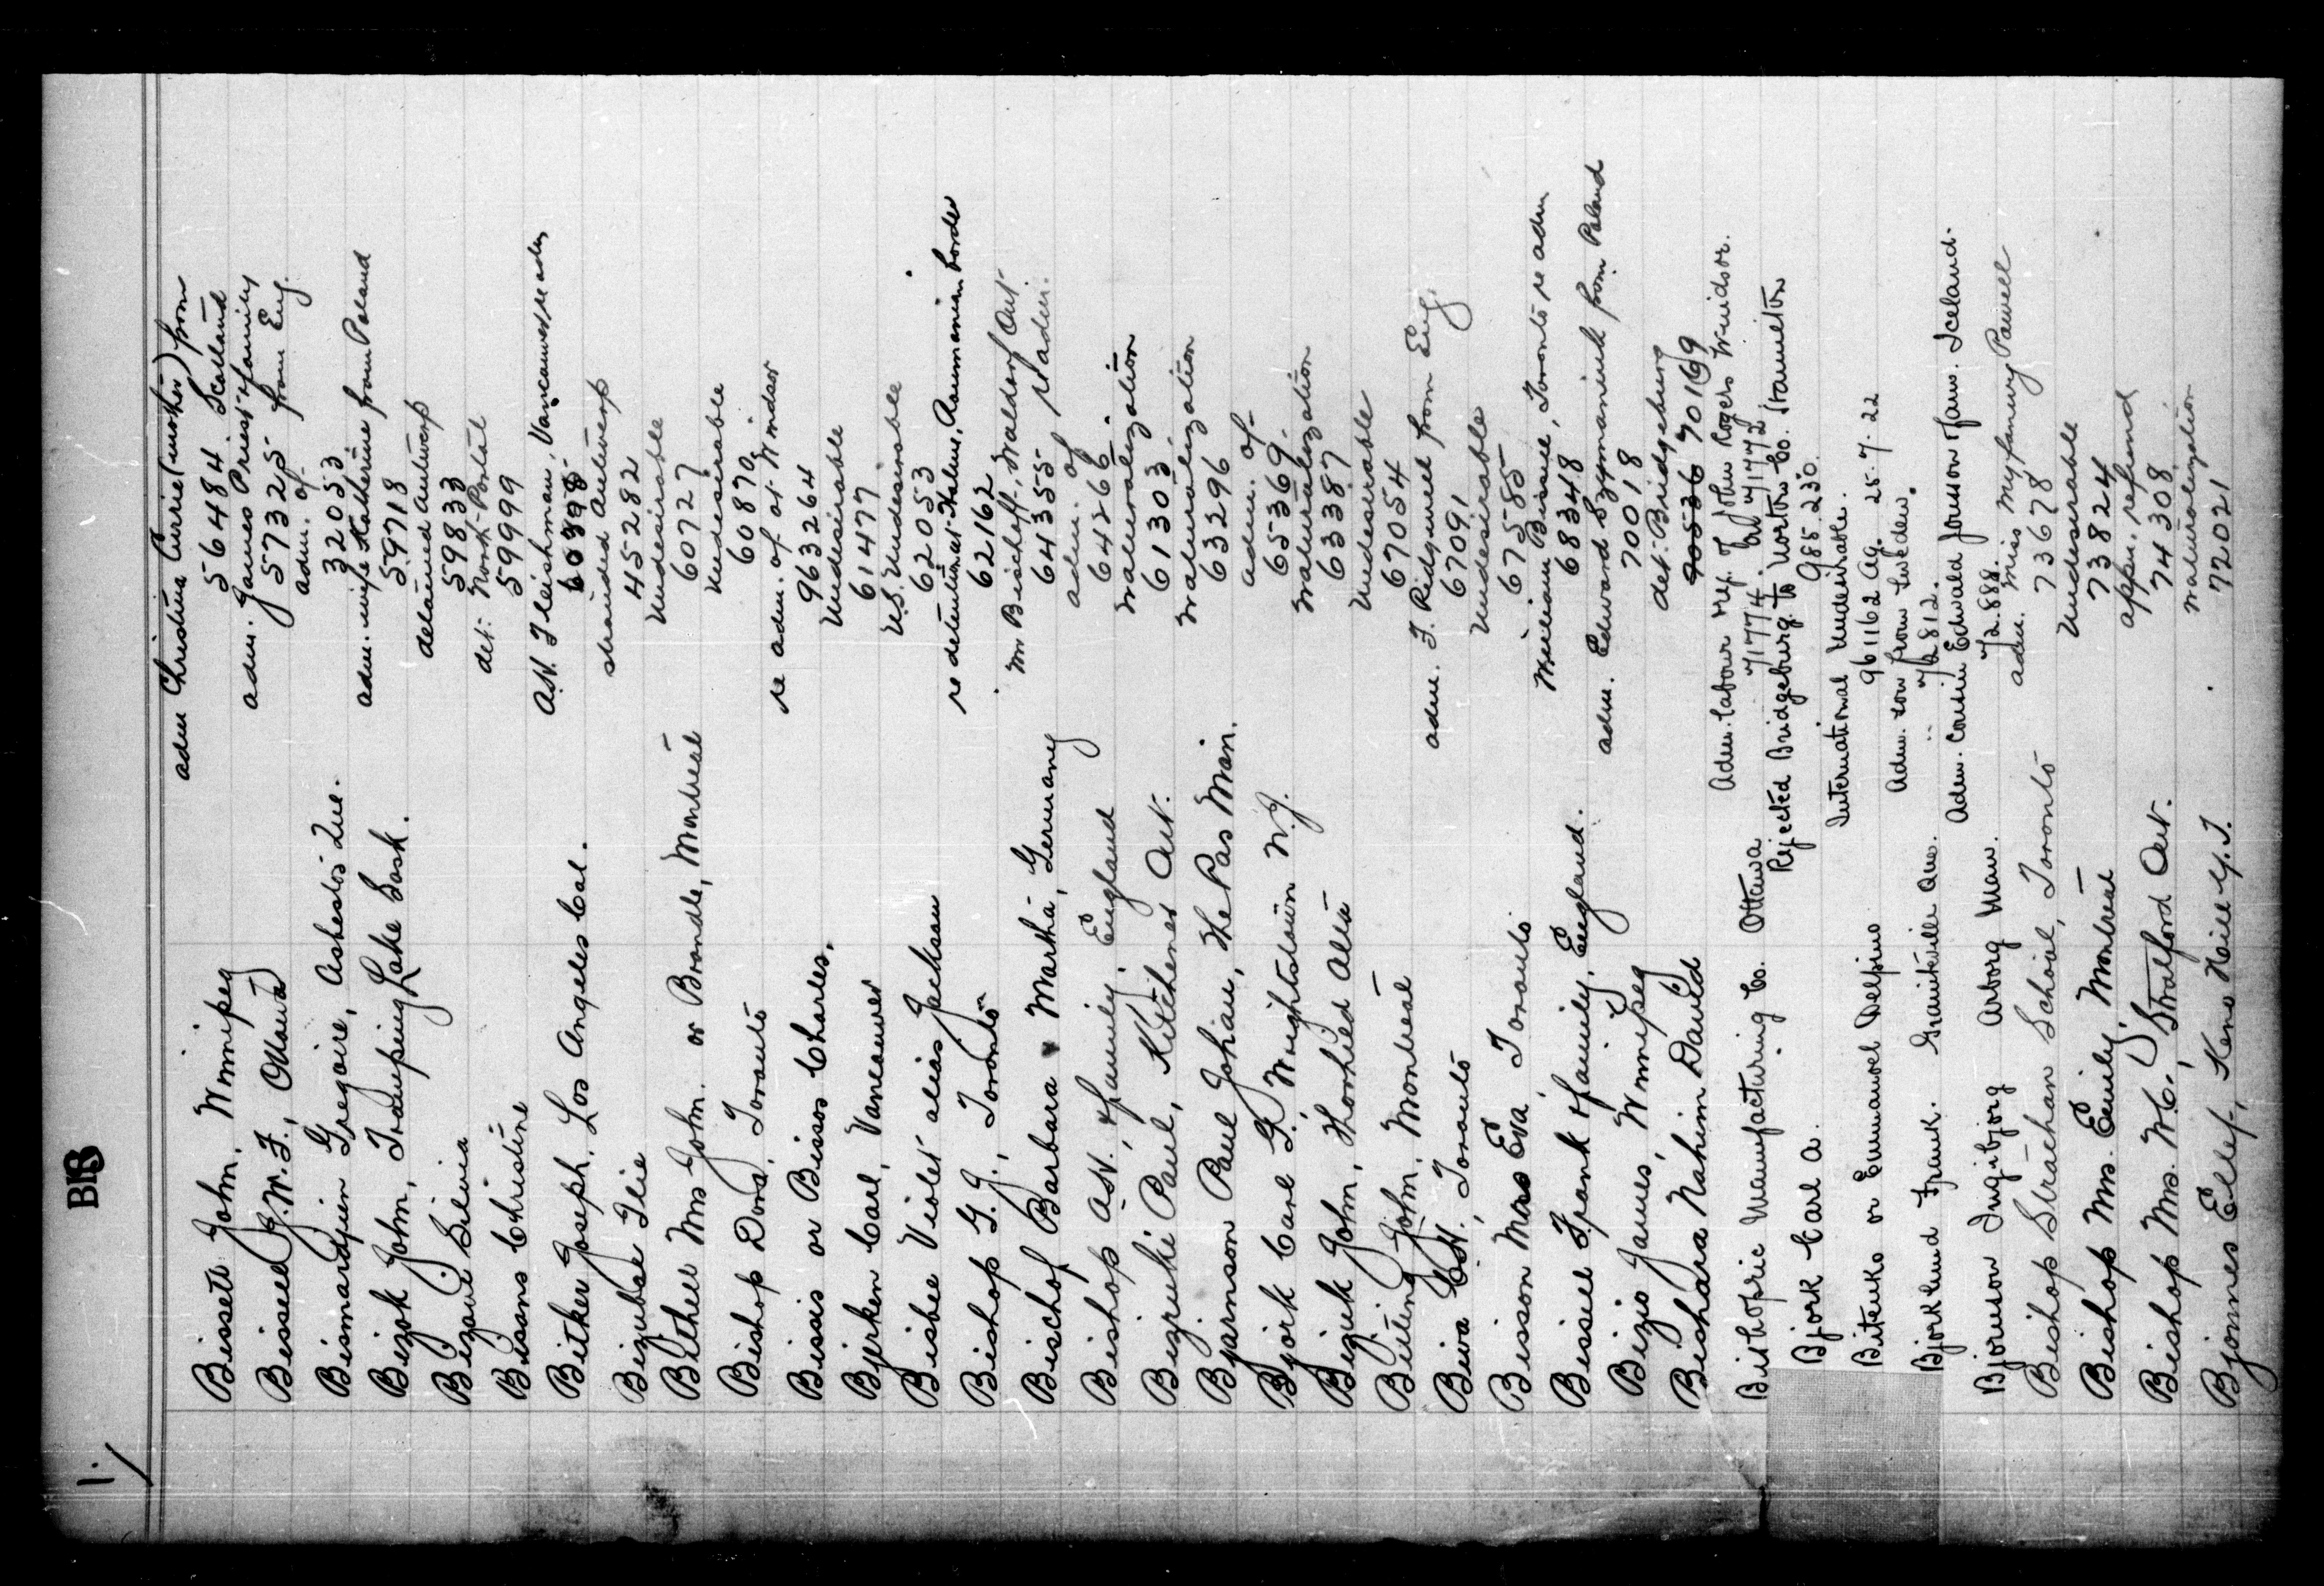 BIB
1.
adm Christina Currie (mother) from
Bissett John, Winnipeg 56484 Scotland
adm. James Priest & family
Bissell J.W.F., Ottawa 57325 from Eng.
adm. of
Bismardjien Gregoire, Asbestos Que. 32053
adm. wife Katherine from Poland
Bizok John, Tramping Lake Sask. 59718
detained Antwerp
Bizovi Silvia 59833
det. North Portal
Bissons Christine 59999
A.H. Fleishman, Vancouver re adm
Bitker Joseph, Los Angeles Cal.
stranded Antwerp
Bizubac Ilie 445282
Undesirable
Bithell Mrs John or Brondle, Montreal 60727
Undesirable
Bishop Dora, Toronto 60870
re adm. of at Windsor
Bissis or Bissos Charles, 963264
Undesirable
Bjerken Carl, Vancouver 61477
U.S. Undesirable
Bisbee Violet alias Jackson 62053
re detention at Halmi, Roumanian border
Bishop G.J., Toronto 62162
Wm Bischoff, Waldorf Ont
Bischof Barbara Martha, Germany 64355 re adm.
adm. of
Bishop A.H., & family, England 64266
Naturalization
Bizruki Paul, Kitchener Ont. 61303
Naturalization
Bjarnson Paul Johian, The Pas Man. 63296
adm. of
Bjork Carl G., Wrightstown N.J. 65369
Naturalization
Biziuk John, Thorhild Alta 63387
Undesirable
Biuting John, Montreal 67054
adm. F. Ridgwell from Eng.
Biwa C.H., Toronto 67091
Undesirable
Bisson Mrs Eva, Toronto 67585
William Bissell, Toronto re adm
Bissill Frank & family, England. 68348
adm. Edward Szymaniuk from Poland
Bizio James, Winnipeg 70018
det. Bridgeburg
Bishara Nahim David 70536 70169
Adm. labour rep. of John Rogers Windsor.
Bisthopric Manufacturing Co. Ottawa 71774
Rejected Bridgeburg to Norton Co. Hamilton
Bjork Carl A. 985230
International Undesirable.
Bitenko or Emmanoel Delpino 961162 Ag. 25.7.22
Adm. son from Sweden.
Bjorklund Frank. Graniteville Que. 72812.
Adm. Cousin Edwald Jonsson & fam. Iceland.
Bjornson Ingibjorg Arborg Man. 72888.
adm. Miss Myfanwy Powell
Bishop Strachan School, Toronto 73678
Undesirable
Bishop Mrs. Emily, Montreal 73824
appn. refund
Bishop Mrs. W.C., Stratford Ont. 74308
Naturalization
Bjonnes Ellef, Keno Hill Y.T. 72021